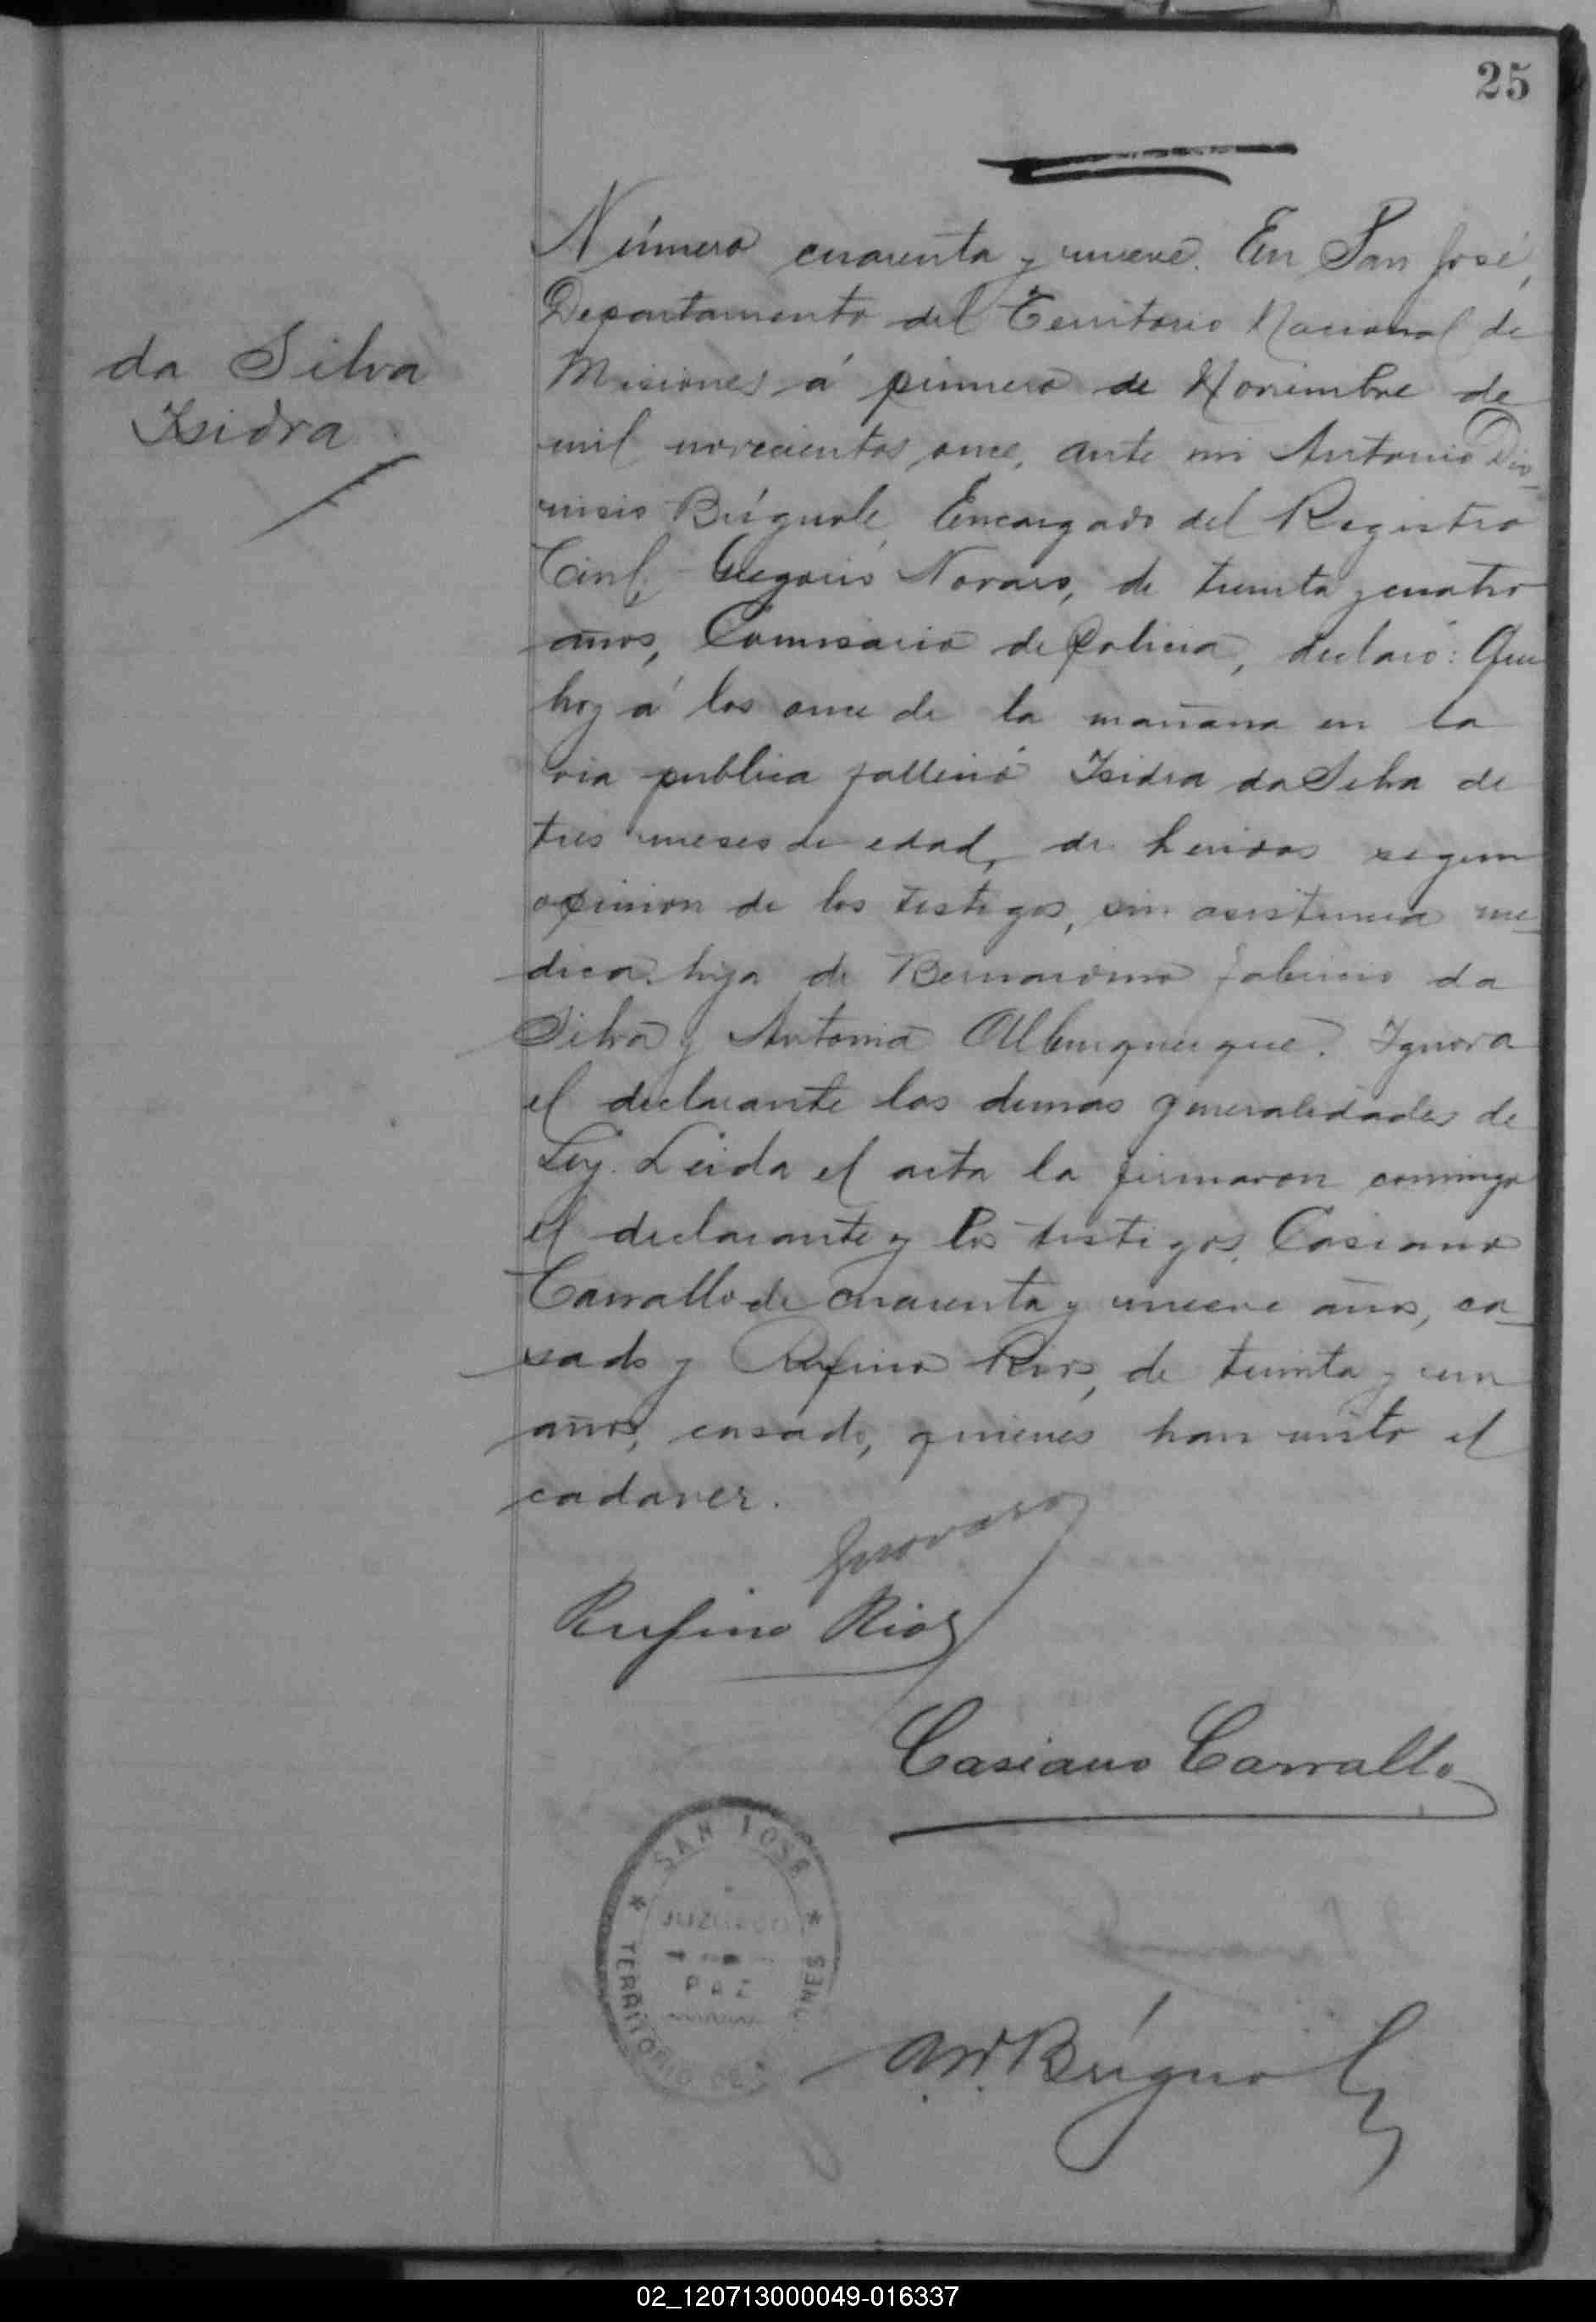 25
da Silva
Isidra
Número cuarenta y nueve. En San José,
Departamento del Territorio Nacional de
Misiones á primero de Noviembre de
mil novecientos once, ante mi Antonio Dio-
nisio Búgnole, Encargado del Registro
Civil, Gregorio Novaro, de treinta y cuatro
años, Comisario de Policia, declaró: Que
hoy á las once de la mañana en la
via publica falleció Isidra da Silva de
tres meses de edad, de heridas segun
opinion de los testigos, sin asistencia me-
dica. hija de Bernardino Fabricio da
Silva y Antonia Alburquerque. Ignora
el declarante las demas generalidades de
Ley. Leida el acta la firmaron conmigo
el declarante y los testigos, Casiano
Carvallo de cuarenta y nueve años, ca-
sado y Rufino Rios, de treinta y un
años, casado, quienes han visto el
cadaver.
Rufino Rios
Casiano Carvallo
SAN JOSE
JUZGADO
PAZ
TERRITORIO DE
02_120713000049-016337